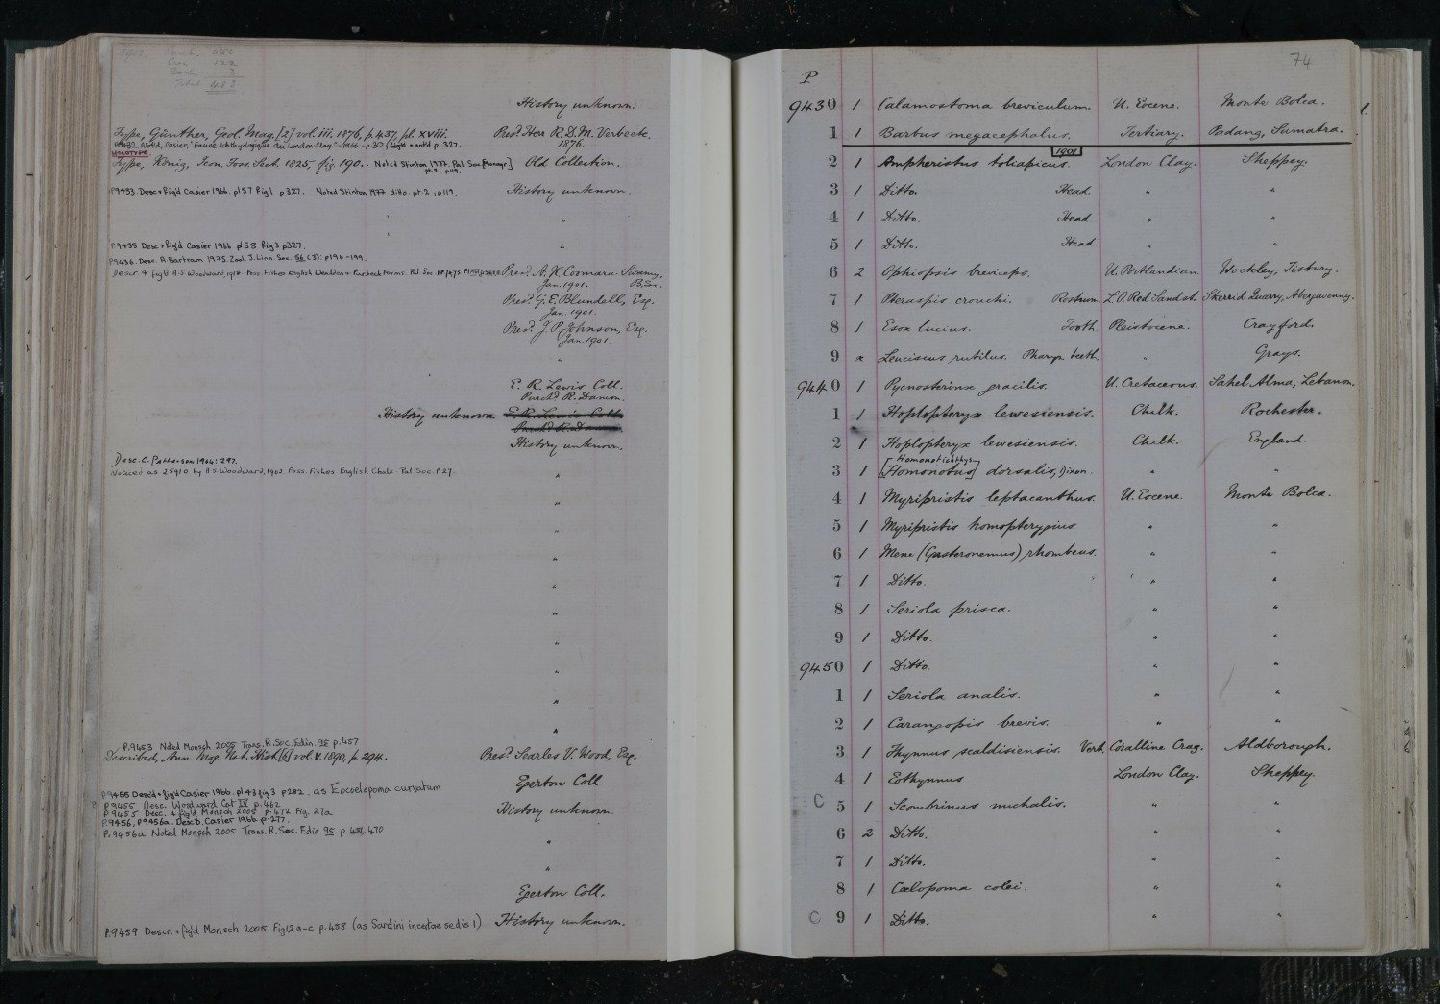 History unknown.
Type, Günther, Geol. Mag. [2] vol. iii. 1876, p. 437, pl. XVIII. Presd. Herr R. D. M. Verbeck.
1876.
HOLOTYPE
Type, König, Icon. Foss. Sect. 1825, fig. 190. Noted Stinton 1977 Pal Soc [Monogr] Old Collection.
pt. 2. p. 119.
P9433 Desc + Fig'd Casier 1966 pl 57 Fig 1 p 327. Noted Stinton 1977 ditto. pt. 2. p 119. History unknown.
"
P.9435 Desc + fig'd Casier 1966 pl 58 Fig 3 p327. "
P.9436. Desc. A. Bartram 1975. Zool. J. Linn. Soc. 56 (3): p 190-199.
Descr + fig'd A.S. Woodward, 1918 Foss. Fishes English Wealden + Purbeck Forms. Pal Soc. Presd. A. K. Coomára-Swamy,
Jan. 1901. B.Sc.
Presd. G. E. Blundell, Esq.
Jan. 1901.
Presd. J. P. Johnson, Esq.
Jan. 1901.
"
E. R. Lewis Coll.
Purchd. R. Damon.
History unknown E. R. Lewis Coll.
Purchd. R. Damon.
History unknown.
Desc. C. Patterson 1964: 297.
Noticed as 25910 by A S Woodward, 1902. Foss. Fishes English Chalk Pal Soc. P 27. "
"
"
"
"
"
"
"
"
"
P.9453 Noted Monsch 2005 Trans. R. Soc. Edin. 95 p. 457
Described, Ann. Mag. Nat. Hist. [6] vol. v. 1890, p. 294. Presd. Searles V. Wood, Esq.
P 9455 Desc'd + fig'd Casier 1966. pl 43 fig 3 p 282. as Eocoelopoma curvatum Egerton Coll
P 9455 Desc. Woodward Cat IV p. 462
P 9455 Desc. & fig'd Monsch 2005 p. 472 Fig. 27a History unknown.
P. 9456, P9456a. Descd. Casier 1966. p. 277.
P. 9456a Noted Monsch 2005 Trans. R. Soc. Edin 95 p 451, 470
"
"
Egerton Coll.
P.9459 Descr. + fig'd Monsch 2005 Fig 15a-c p. 458 (as Sardini incertae sedis 1) History unknown.
74
P
9430 1 Calamostoma breviculum. U. Eocene. Monte Bolca.
1 1 Barbus megacephalus. Tertiary. Padang, Sumatra.
1901
2 1 Ampheristus toliapicus. London Clay. Sheppey.
3 1 Ditto. Head. " "
4 1 Ditto. Head " "
5 1 Ditto. Head " "
6 2 Ophiopsis breviceps. U. Portlandian. Wockley, Tisbury.
7 1 Pteraspis crouchi. Rostrum. L. O. Red Sandst. Skerrid Quarry, Abergavenny.
8 1 Esox lucius. Tooth. Pleistocene. Crayford.
9 x Leuciscus rutilus. Pharyn. teeth. " Grays.
9440 1 Pycnosterinx gracilis. U. Cretaceous. Sahel Alma, Lebanon.
1 1 Hoplopteryx lewesiensis. Chalk. Rochester.
2 1 Hoplopteryx lewesiensis. Chalk. England
Homonotichthys
3 1 [Homonotus] dorsalis, Dixon. " "
4 1 Myripristis leptacanthus. U. Eocene. Monte Bolca.
5 1 Myripristis homopterygius " "
6 1 Mene (Gasteronemus) rhombeus. " "
7 1 Ditto. " "
8 1 Seriola prisca. " "
9 1 Ditto. " "
9450 1 Ditto. " "
1 1 Seriola analis. " "
2 1 Carangopsis brevis. " "
3 1 Thynnus scaldisiensis. Vert. Coralline Crag. Aldborough.
4 1 Eothynnus London Clay. Sheppey.
C 5 1 Scombrinus nuchalis. " "
6 2 Ditto. " "
7 1 Ditto. " "
8 1 Cœlopoma colei. " "
C 9 1 Ditto. " "